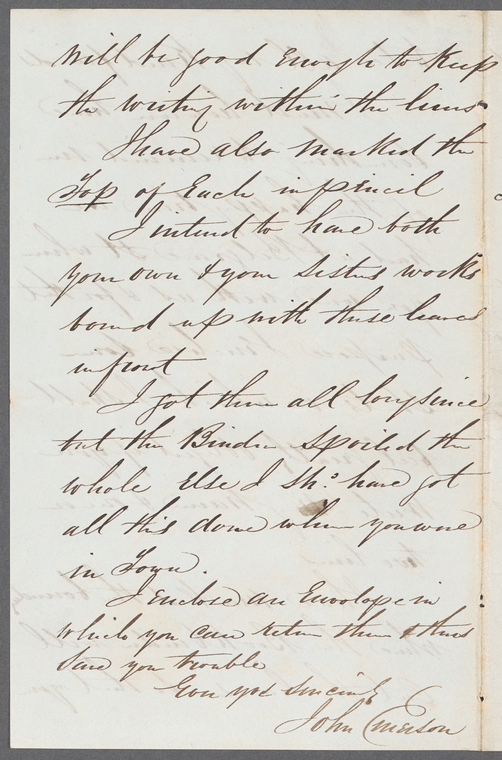 will be good enough to keep
the writing within the lines
I have also marked the
Top of Each in pencil
I intend to have both
your own & your Sisters works
bound up with these leaves
in front
I got them all long since
but the Binder Spoiled the
whole Else I Shd have got
all this done when you were
in Town.
I enclose an Envelope in
which you can return them & thus
Save you trouble
Ever yrs Sincerely
John Emerson